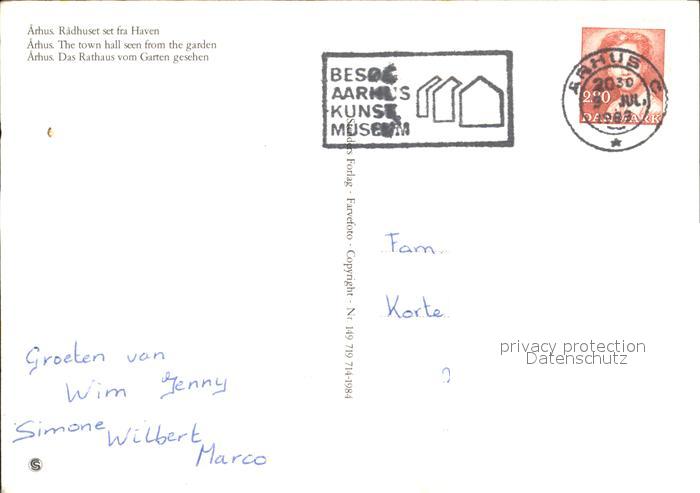 Århus. Rådhuset set fra Haven
Århus. The town hall seen from the garden
Århus. Das Rathaus vom Garten gesehen
BESØG
AARHUS
KUNST
MUSEUM
AARHUS C
2030
JUL.
280
DANMARK
Stenders Forlag - Farvefoto - Copyright - Nr 149 719 714-1984
Fam.
Korte
privacy protection
Datenschutz
Groeten van
Wim Jenny
Simone Wilbert
Marco
S